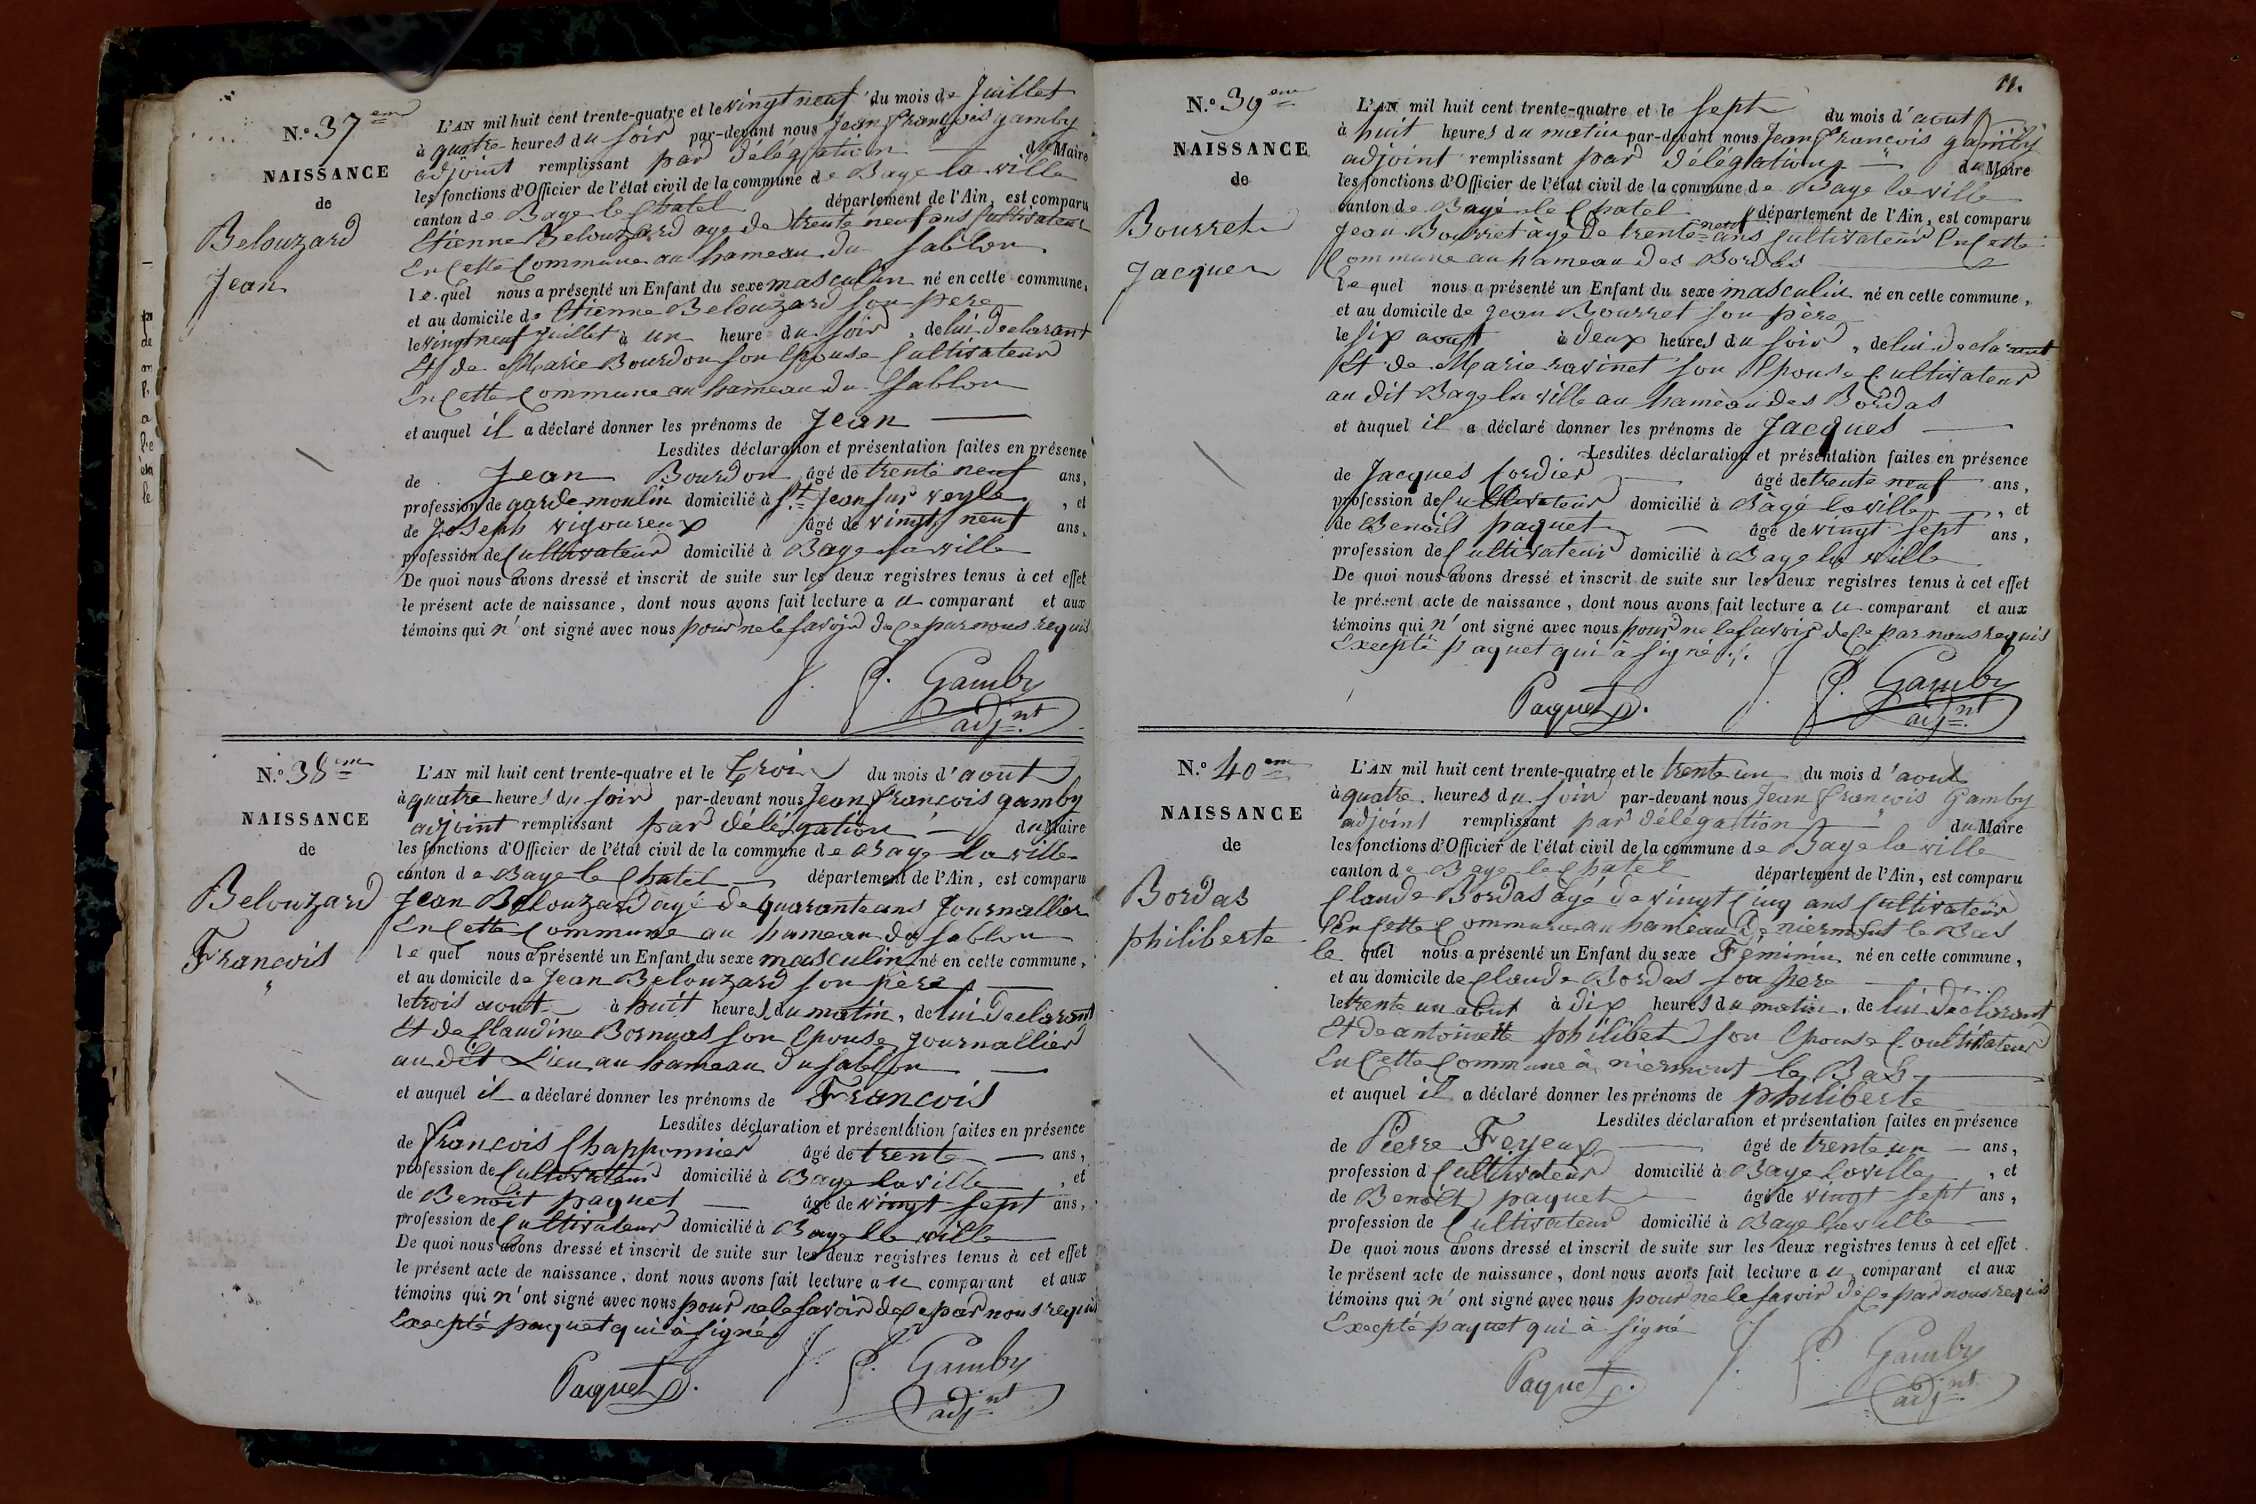 N.º 37em
NAISSANCE
de
Belouzard
Jean
L'AN mil huit cent trente-quatre et le vingt neuf du mois de Juillet
à quatre heures du soir par-devant nous Jean françois gamby
adjoint remplissant par délégation du Maire
les fonctions d'Officier de l'état civil de la commune de Bage la ville
canton de Bage le Chatel département de l'Ain, est comparu
Etienne Belouzard age de trente neuf ans Cultivateur
En Cette Commune au hameau du Sablon
lequel nous a présenté un Enfant du sexe masculin né en cette commune,
et au domicile de Etienne Belouzard son pere
le vingt neuf Juillet à un heure du soir, de lui déclarant
Et de Marie Bourdon son Epouse Cultivateur
En Cette Commune au hameau du Sablon
et auquel il a déclaré donner les prénoms de Jean
Lesdites déclaration et présentation faites en présence
de Jean Bourdon âgé de trente neuf ans,
profession de garde moulin domicilié à St Jean sur veyle, et
de Joseph vigoureux âgé de vingt neuf ans,
profession de Cultivateur domicilié à Bage la ville
De quoi nous avons dressé et inscrit de suite sur les deux registres tenus à cet effet
le présent acte de naissance, dont nous avons fait lecture au comparant et aux
témoins qui n'ont signé avec nous pour ne le savoir de Ce par nous requis
J. f. Gamby
adjnt
N.º 38em
NAISSANCE
de
Belouzard
Francois
L'AN mil huit cent trente-quatre et le trois du mois d'aout
à quatre heures du soir par-devant nous Jean françois gamby
adjoint remplissant par délégation du Maire
les fonctions d'Officier de l'état civil de la commune de Bage la ville
canton de Bage le Chatel département de l'Ain, est comparu
Jean Belouzard agé de quarante ans Journallier
En Cette Commune au hameau du Sablon
lequel nous a présenté un Enfant du sexe masculin né en cette commune,
et au domicile de Jean Belouzard son père
le trois aout à huit heures du matin, de lui déclarant
Et de Claudine son Epouse Journallier
au dit Lieu au hameau du Sablon
et auquel il a déclaré donner les prénoms de Francois
Lesdites déclaration et présentation faites en présence
de françois Chapponnier âgé de trente ans,
profession de Cultivateur domicilié à Bage la ville, et
de Benoit paquet âgé de vingt sept ans,
profession de Cultivateur domicilié à Bage la ville
De quoi nous avons dressé et inscrit de suite sur les deux registres tenus à cet effet
le présent acte de naissance, dont nous avons fait lecture au comparant et aux
témoins qui n'ont signé avec nous pour ne le savoir de Ce par nous requis
Excepté paquet qui à signé
Paquet J. f. Gamby
adjnt
11.
N.º 39em
NAISSANCE
de
Bourret
Jacques
L'AN mil huit cent trente-quatre et le sept du mois d'aout
à huit heures du matin par-devant nous Jean françois gamby
adjoint remplissant par délégation du Maire
les fonctions d'Officier de l'état civil de la commune de Bage la ville
canton de Bagé le Chatel département de l'Ain, est comparu
Jean Bourret àgé de trente neuf ans Cultivateur En Cette
Commune au hameau des Bordas
lequel nous a présenté un Enfant du sexe masculin né en cette commune,
et au domicile de Jean Bourret son père
le six aout à deux heures du soir, de lui déclarant
Et de Marie ravinet son Epouse Cultivateur
au dit Bage la ville au hameau des Bordas
et auquel il a déclaré donner les prénoms de Jacques
Lesdites déclaration et présentation faites en présence
de Jacques Cordier âgé de trente neuf ans,
profession de Cultivateur domicilié à Bàgé la ville, et
de Benoit paquet âgé de vingt sept ans,
profession de Cultivateur domicilié à Bage la ville
De quoi nous avons dressé et inscrit de suite sur les deux registres tenus à cet effet
le présent acte de naissance, dont nous avons fait lecture au comparant et aux
témoins qui n'ont signé avec nous pour ne le savoir de Ce par nous requis
Excepté paquet qui à signé
Paquet J. f. Gamby
adjnt
N.º 40em
NAISSANCE
de
Bordas
philiberte
L'AN mil huit cent trente-quatre et le trente un du mois d'aout
à quatre heures du soir par-devant nous Jean françois Gamby
adjoint remplissant par délégation du Maire
les fonctions d'Officier de l'état civil de la commune de Bage la ville
canton de Bage le Chatel département de l'Ain, est comparu
Claude Bordas àgé de vingt Cinq ans Cultivateur
En Cette Commune au hameau de niermont le Bas
le quel nous a présenté un Enfant du sexe Féminin né en cette commune,
et au domicile de Claude Bordas son pere
le trente un aout à dix heures du matin, de lui déclarant
Et de antoinette philibet son Epouse Cultivateur
En Cette Commune à niermont le Bas
et auquel il a déclaré donner les prénoms de philiberte
Lesdites déclaration et présentation faites en présence
de Pierre Feyeux âgé de trente un ans,
profession d Cultivateur domicilié à Bage la ville, et
de Benoit paquet âgé de vingt sept ans,
profession de Cultivateur domicilié à Bage la ville
De quoi nous avons dressé et inscrit de suite sur les deux registres tenus à cet effet
le présent acte de naissance, dont nous avons fait lecture au comparant et aux
témoins qui n'ont signé avec nous pour ne le savoir de Ce par nous requis
Excepté paquet qui à signé
Paquet J. f. Gamby
adjnt